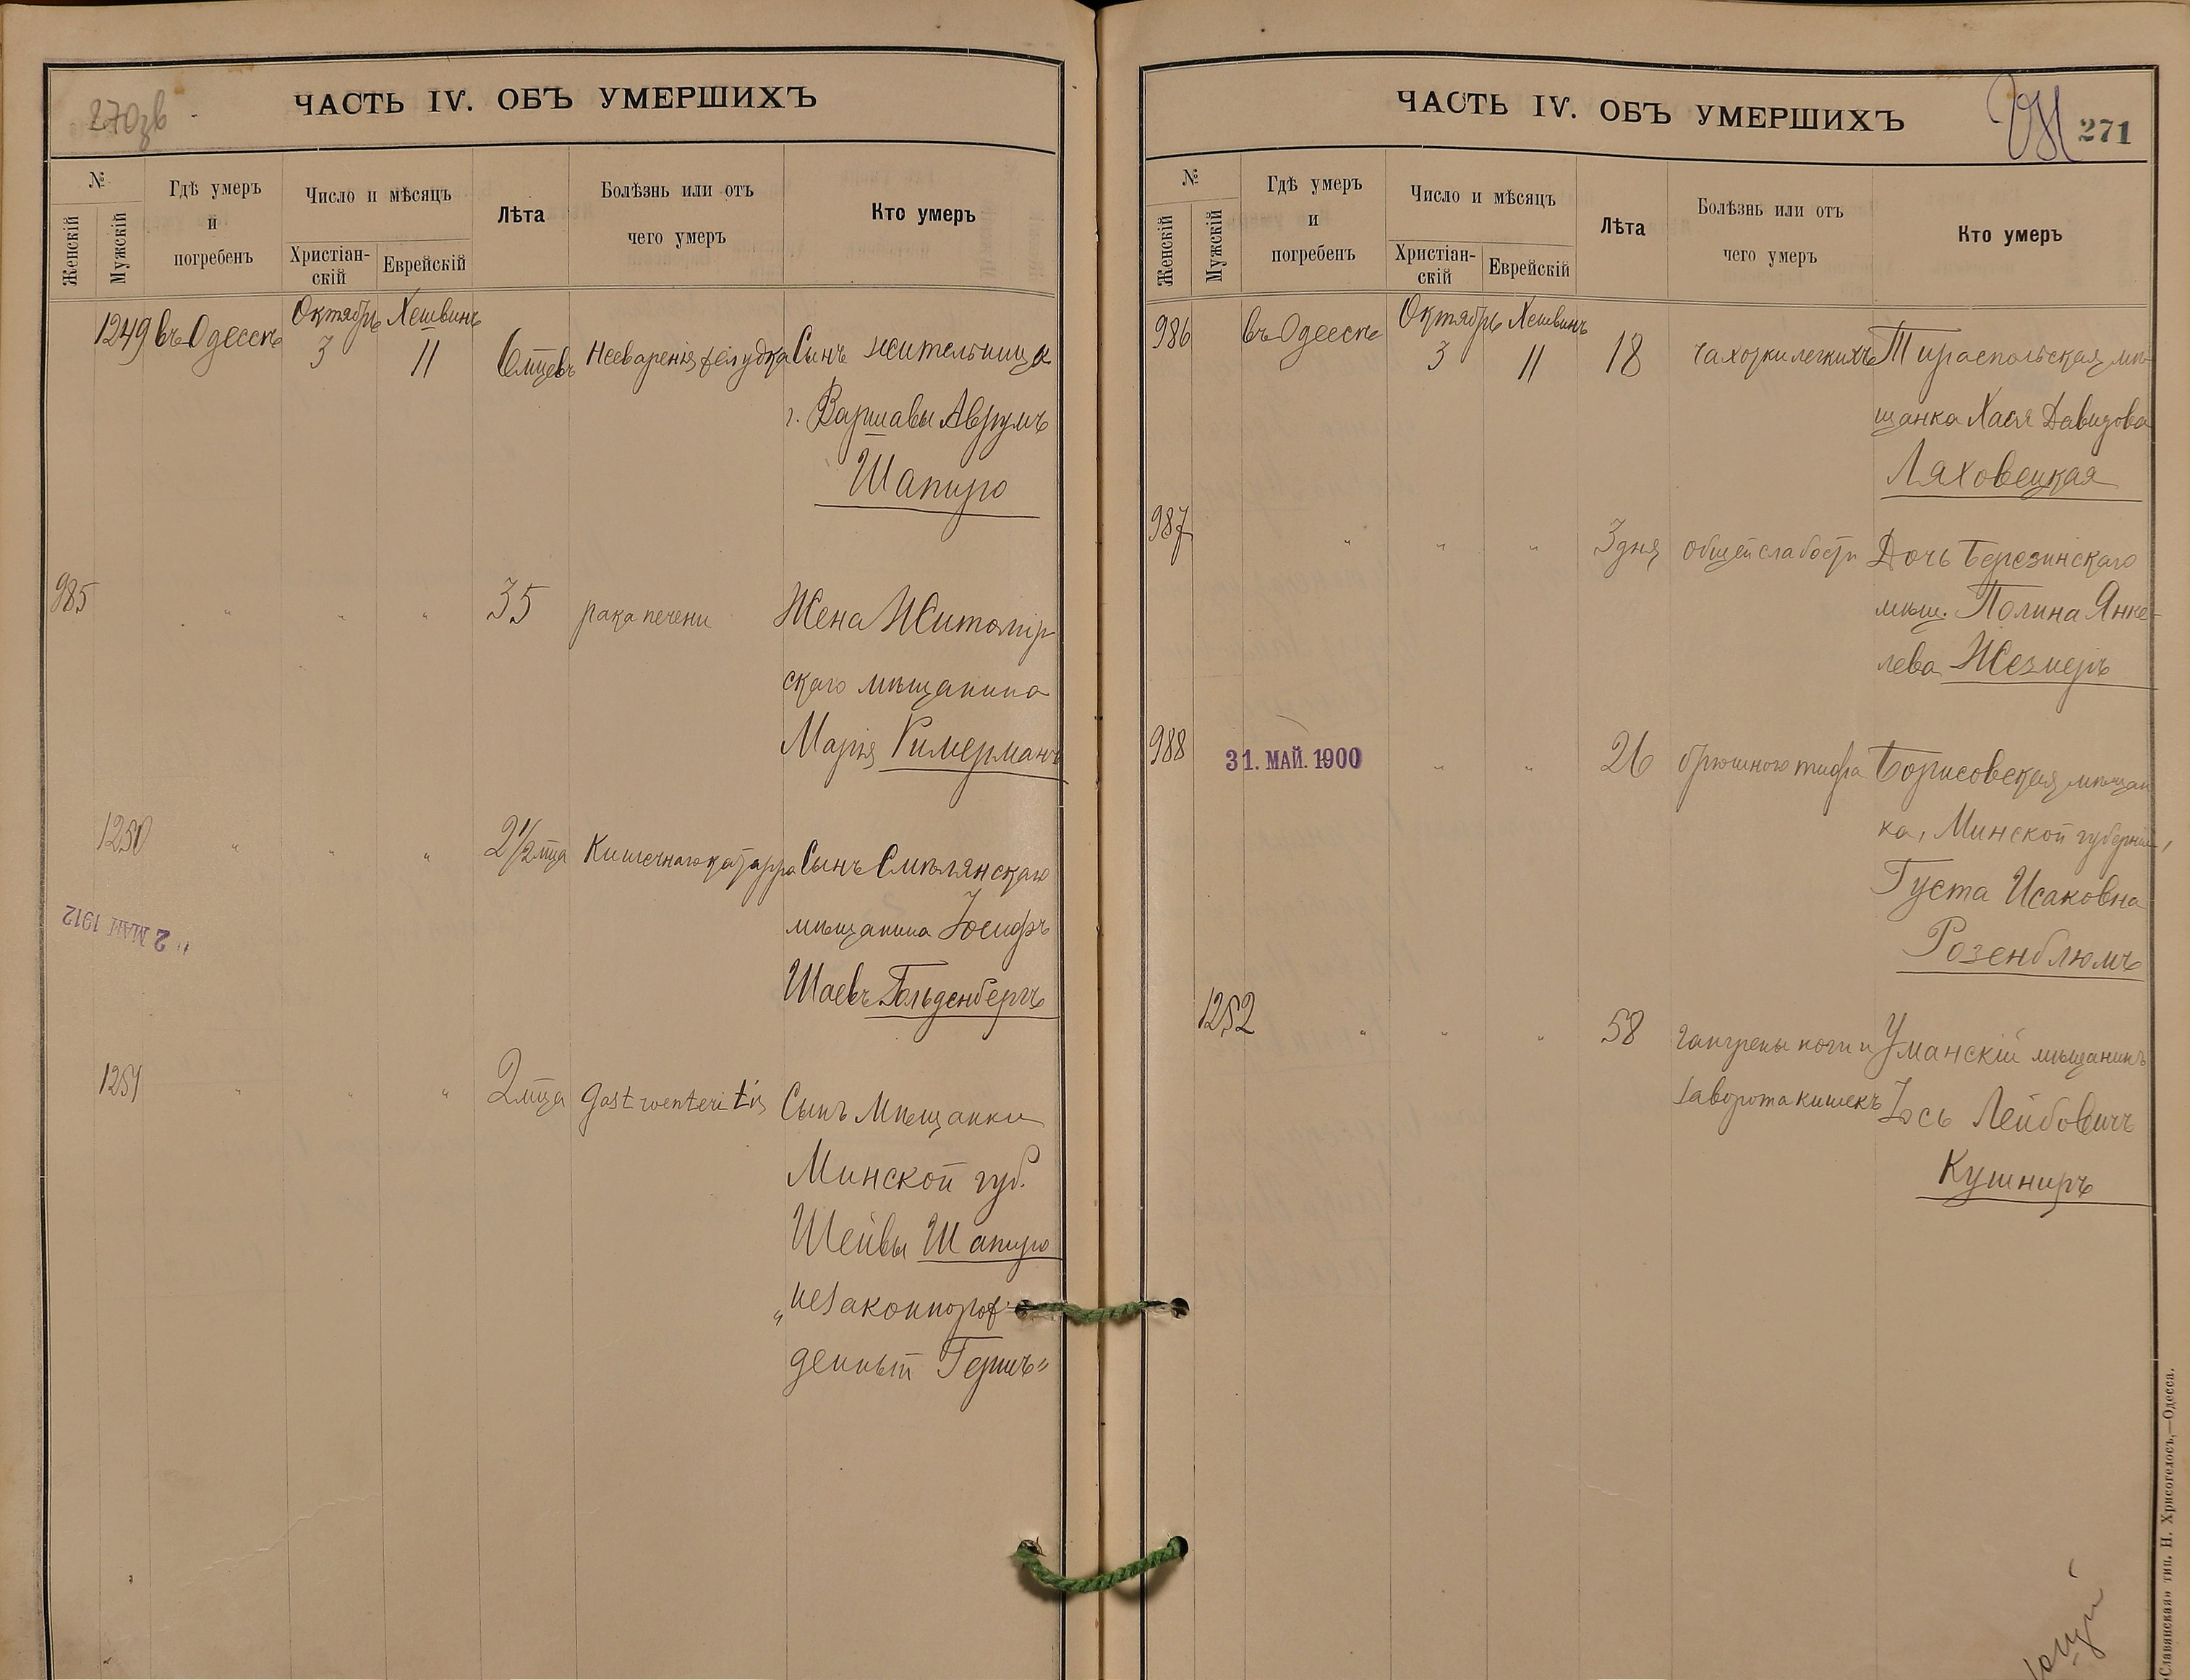 270зв
ЧАСТЬ IV. ОБЪ УМЕРШИХЪ
№
Женскій
Мужскій
Гдѣ умеръ
и
погребенъ
Число и мѣсяцъ
Христіан-
скій
Еврейскій
Лѣта
Болѣзнь или отъ
чего умеръ
Кто умеръ
Октябрь Хешвинъ
1249 въ Одессѣ 3 11 6 мцевъ Несваренія желудка Сынъ жительница
г. Варшавы Аврумъ
Шапиро
985 " " " 35 рака печени Жена Житомір
скаго мѣщанина
Марія Римерманъ
1250 " " " 2 1/2 мца Кишечнаго катарра Сынъ Смѣлянскаго
мѣщанина Іосифъ
Шаевъ Гольденбергъ
2 МАЙ 1912
1251 " " " 2 мца Gastroenteritis Сынъ Мѣщанки
Минской губ.
Шейвы Шапиро
"незаконнорож-
денный Гершъ"
ЧАСТЬ IV. ОБЪ УМЕРШИХЪ
271
№
Женскій
Мужскій
Гдѣ умеръ
и
погребенъ
Число и мѣсяцъ
Христіан-
скій
Еврейскій
Лѣта
Болѣзнь или отъ
чего умеръ
Кто умеръ
Октябрь Хешвинъ
986 въ Одессѣ 3 11 18 чахотки легкихъ Тираспольская мѣ-
щанка Хася Давидова
Ляховецкая
987 " " " 3 дня общей слабости Дочь Березинскаго
мѣщ. Полина Янке-
лева Жезмеръ
988 31. МАЙ. 1900 " " 26 брюшного тифа Борисовская мѣщан
ка, Минской губерніи,
Густа Исаковна
Розенблюмъ
1252 " " " 58 гангрены ноги и Уманскій мѣщанинъ
заворота кишекъ Іось Лейбовичъ
Кушниръ
«Славянская» тип. Н. Хрисогелосъ,—Одесса.